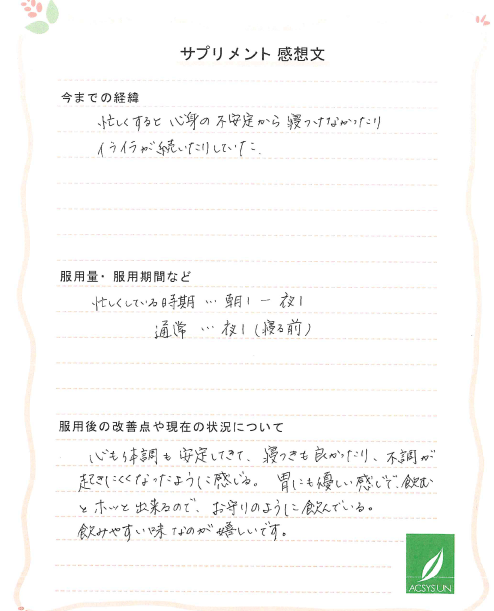 サプリメント 感想文
今までの経緯
忙しくすると 心身の不安定から 寝つけなかったり
イライラが続いたりしていた.
服用量・服用期間など
忙しくしている時期 … 朝1 ー 夜1
通常 … 夜1 (寝る前)
服用後の改善点や現在の状況について
心も体調も安定してきて、寝つきも良かったり、不調が
起きにくくなったように感じる。 胃にも優しい感じで、飲む
とホッと出来るので、お守りのように飲んでいる。
飲みやすい味なのが嬉しいです。
ACSYSUN